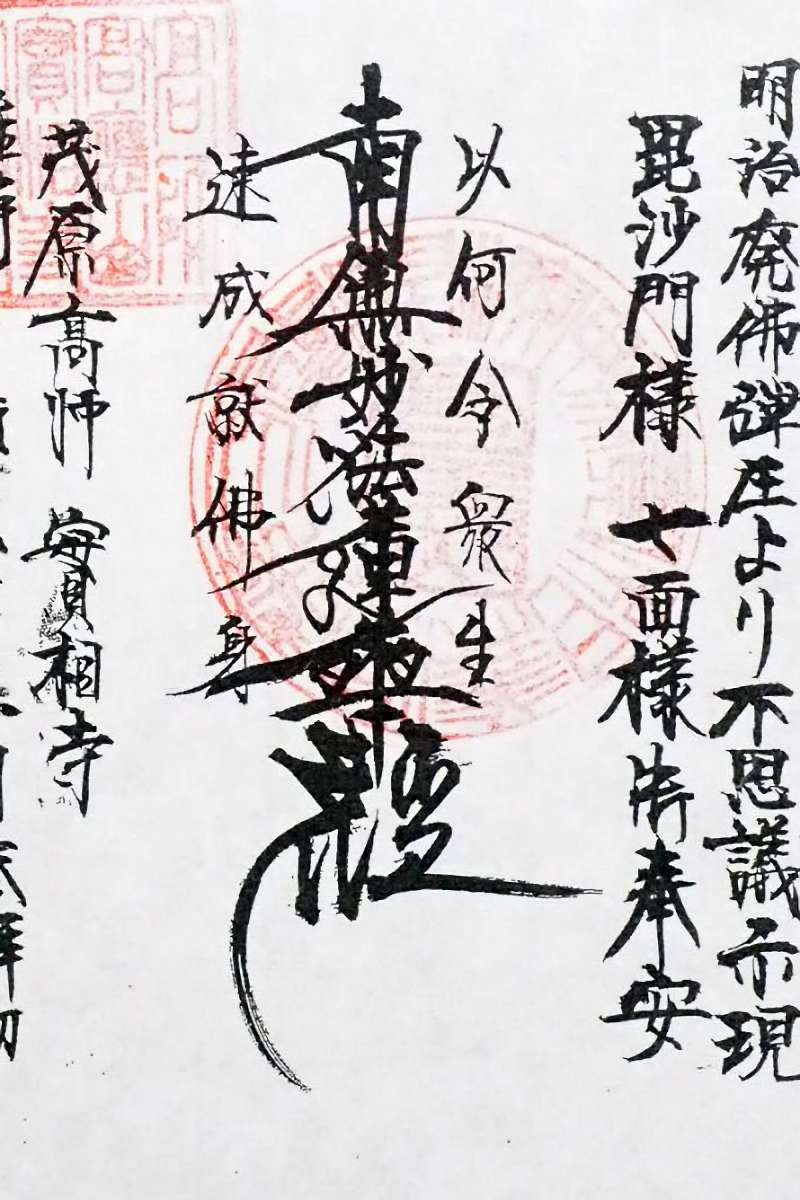 明治廃佛弾圧より不思議示現
毘沙門様 七面様御奉安
以何令衆生
南無妙法蓮華経
速成就佛身
茂原高師 實相寺